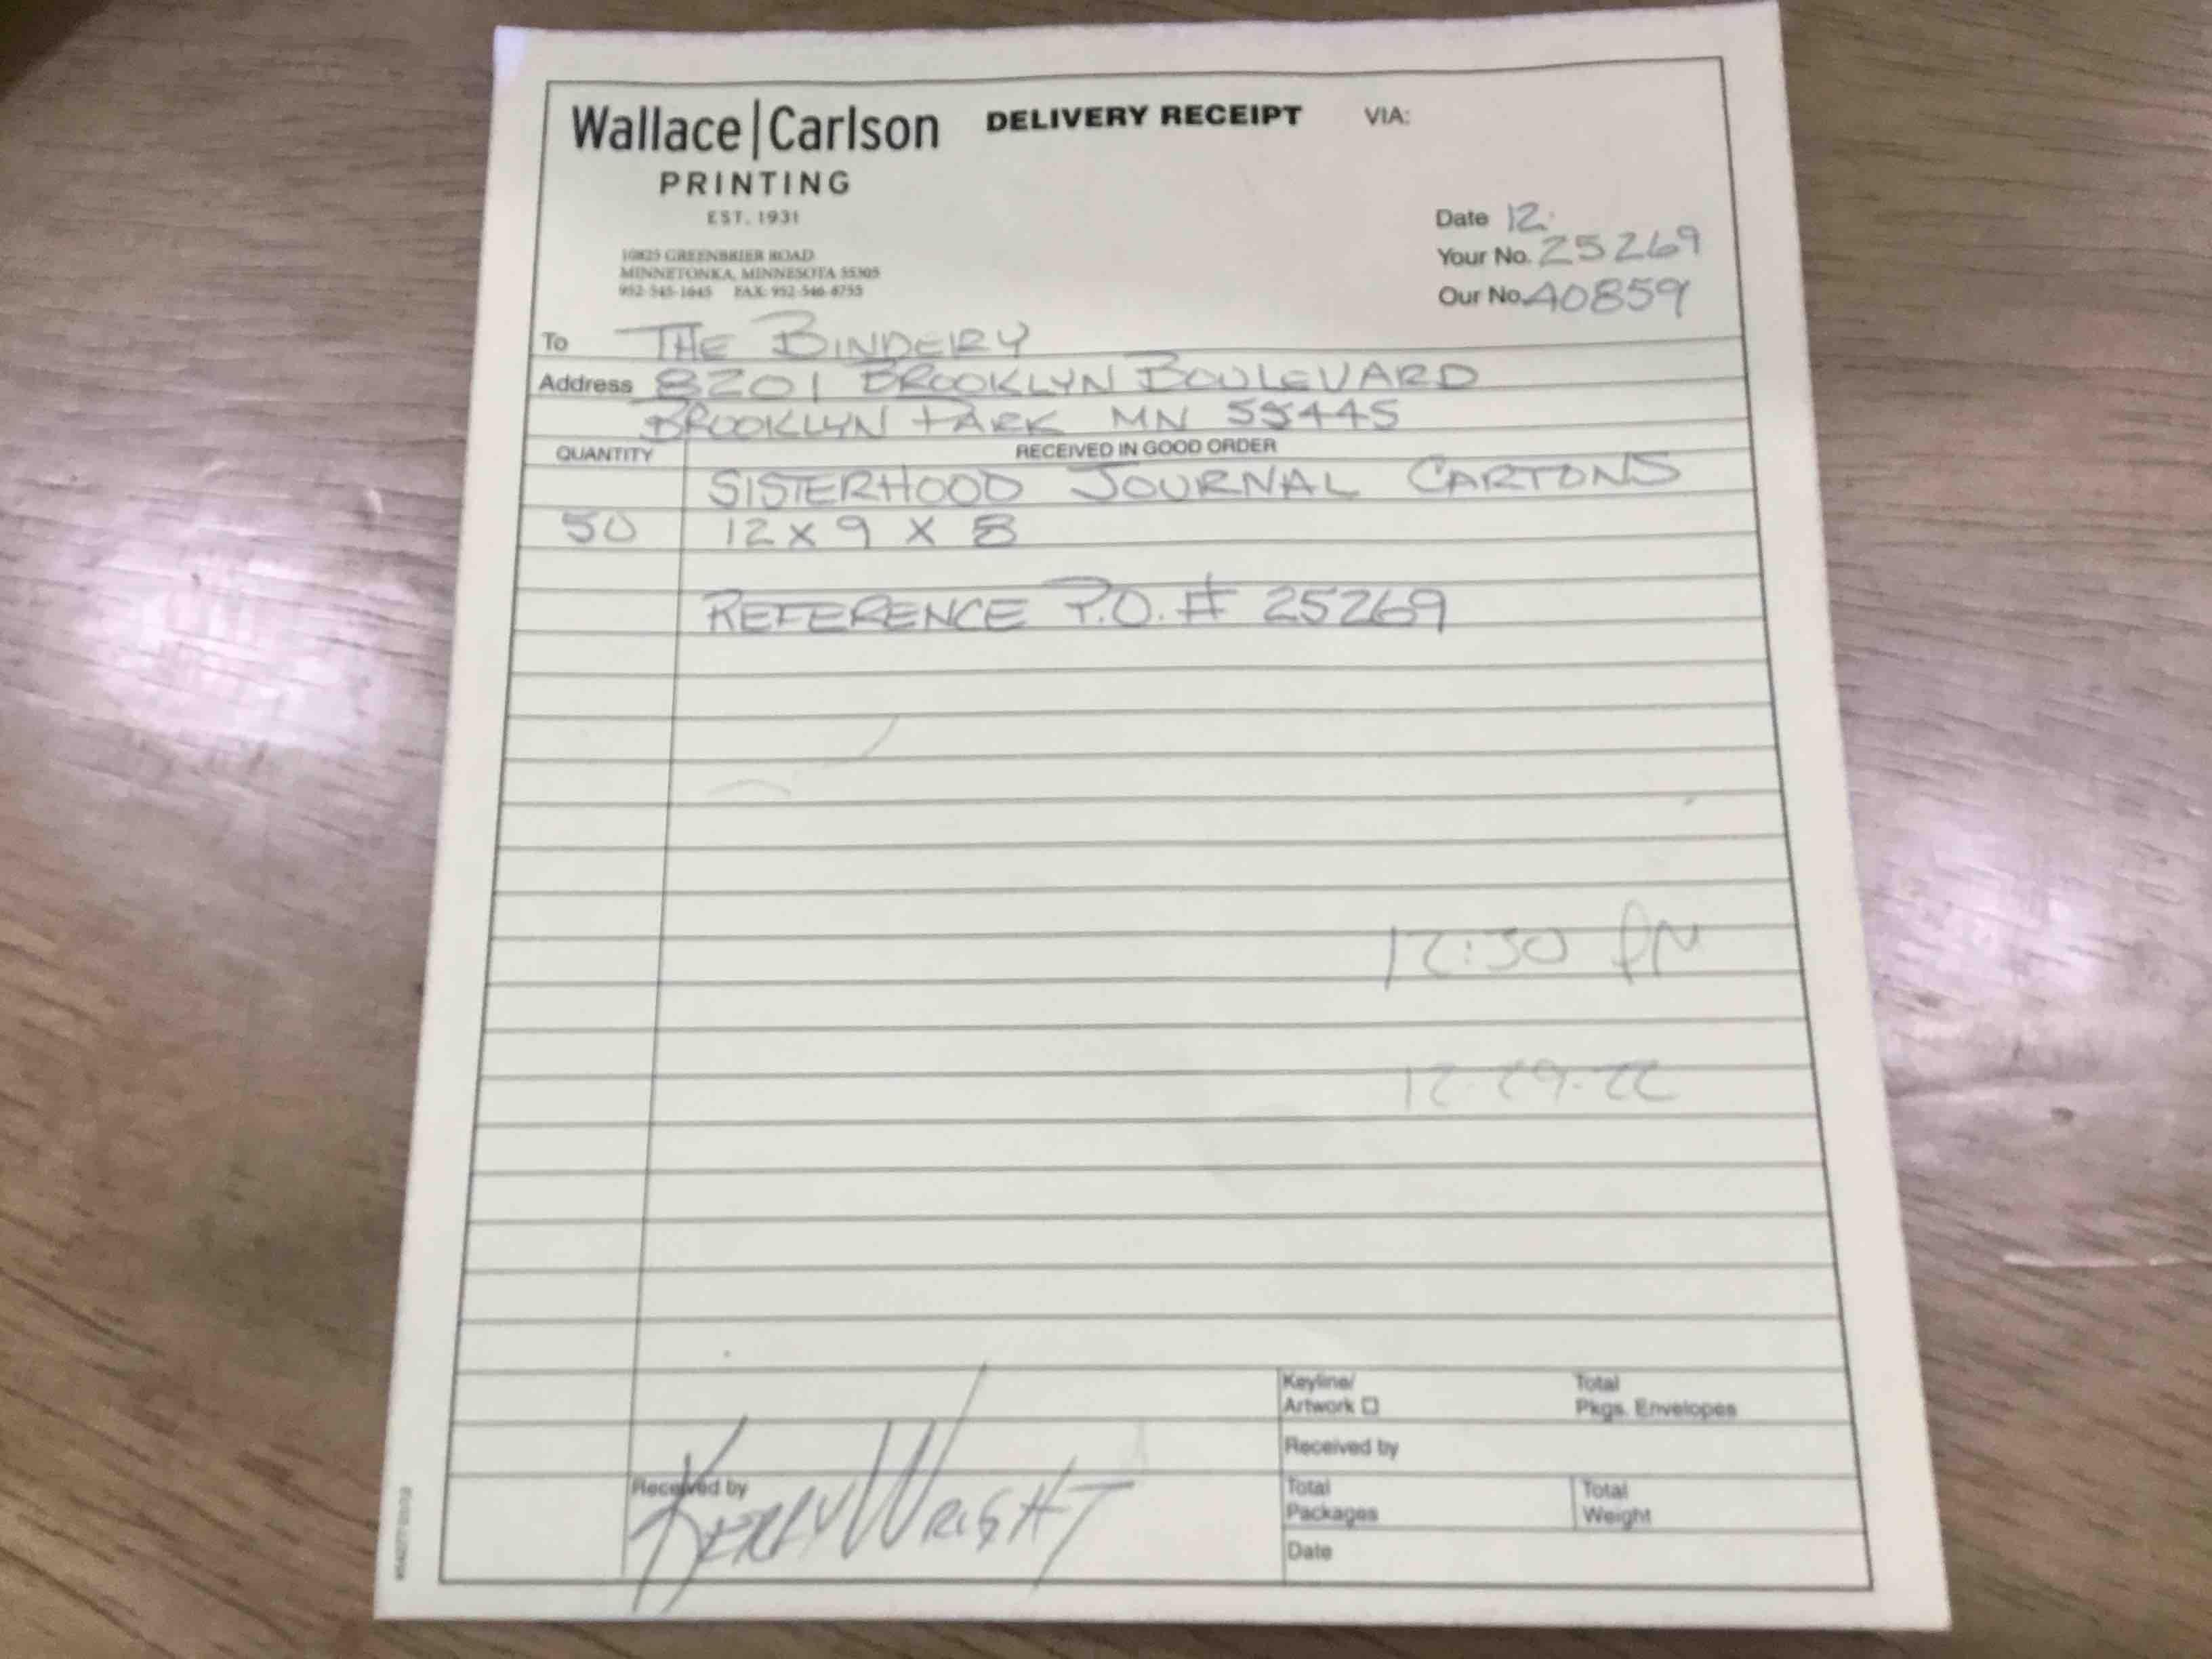 Wallace|Carlson DELIVERY RECEIPT VIA:
PRINTING
EST. 1931
10825 GREENBRIER ROAD
MINNETONKA, MINNESOTA 55305
952-545-1645 FAX: 952-546-8755
Date 12.
Your No. 25269
Our No. A0859
To THE BINDERY
Address 8201 BROOKLYN BOULEVARD
BROOKLYN PARK MN 55445
QUANTITY RECEIVED IN GOOD ORDER
SISTERHOOD JOURNAL CARTONS
50 12 x 9 x 8
REFERENCE P.O. # 25269
12:30 PM
12-29-22
Keyline/
Artwork
Total
Pkgs. Envelopes
Received by
Received by WRIGHT
Total
Packages
Total
Weight
Date